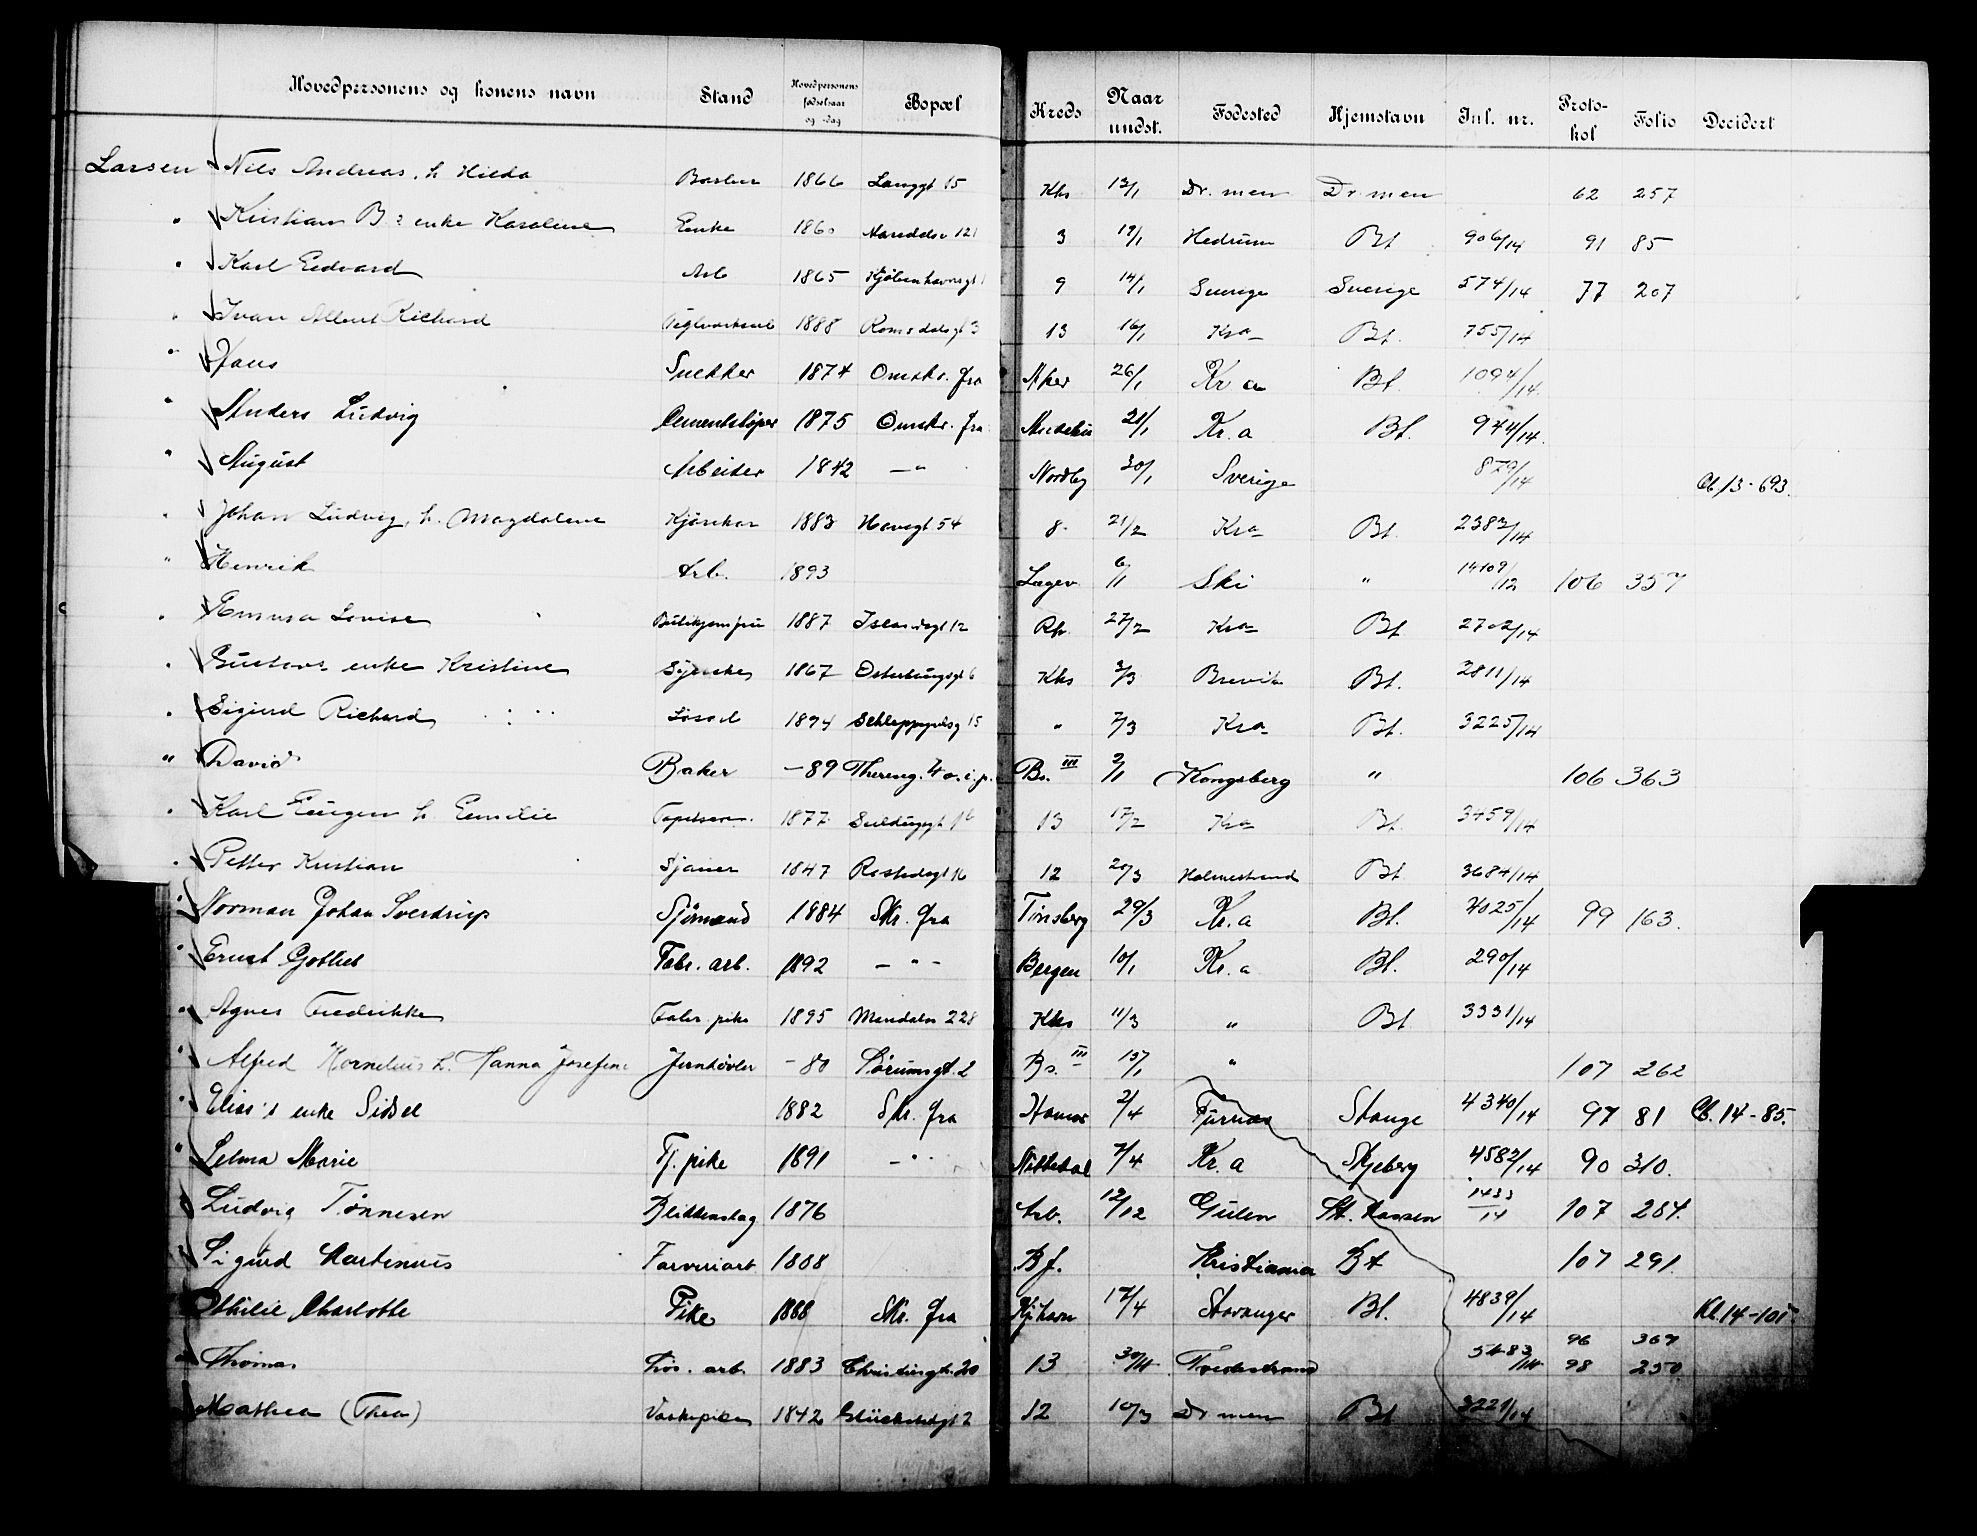 Hovedpersonens og konens navn Stand Hovedpersonens fødselsaar og -dag Bopæl Kreds Naar undst. Fødested Hjemstavn Jnl. nr. Proto-kol Folio Decidert
Larsen Nils Andreas, h. Hilda 1866 Langgt 15 Kks 13/1 Dr.men Drmen 62 257
" Kristian B's enke Karoline Enke 1860 3 19/1 Hedrum Bt 906/14 91 85
" Karl Edvard Arb 1865 Kjøbenhavnsgt 9 14/1 Sverige Sverige 574/14 77 207
" Ivar Albert Richard 1888 Romsdalsgt 3 13 16/1 Kra Bt. 755/14
" Hans Snekker 1874 Omskr. fra Aker 26/1 Kr a Bt. 1094/14
" Anders Ludvig Cementstøper 1875 Omskr. fra 21/1 Kr. a Bt. 944/14
" August Arbeider 1842 — " Nordby 30/1 Sverige 879/14 Cb. 13-693.
" Johan Ludvig, h. Magdalene Kjørekar 1883 Havegt 54 8 21/2 Kra Bt. 2383/14
" Henrik Arb. 1893 Lagev 6/1 Ski " 14109/12 106 357
" Emma Lovise 1887 Islandsgt 12 27/2 Kra Bt 2702/14
" Gustavs enke Kristine Syerske 1867 Kks 3/3 Brevik Bt. 2811/14
" Sigurd Richard 1894 Schleppegrelsg 15 " 7/3 Kra Bt. 3225/14
" David Baker -89 Thereseg. 40. i. p. Bs. III 2/1 Kongsberg " 106 363
" Karl Eugen h. Emilie 1877 13 17/2 Kra Bt. 3459/14
" Petter Kristian 1847 12 20/3 Holmestrand Bt. 3684/14
" Norman Johan Sverdrup Sjømand 1884 Skr. fra Tønsberg 29/3 Kr. a Bt. 4025/14 99 163.
" Ernst Gotlieb Fabr. arb. 1892 — " — Bergen 10/1 Kr. a Bt. 290/14
" Agnes Fredrikke Fabr. pike 1895 Maridalsv 228 Kks 11/3 " Bt 3331/14
" Alfred Kornelius h. Hanna Josefine Jernhøvler -80 Sørumsgt. 2 Bs. III 13/1 " 107 262
" Elias's enke Sidsel 1882 Skr. fra Hamar 2/4 Furnes Stange 4340/14 97 81 Cb. 14-85.
" Selma Marie Tj. pike 1891 — " Nittedal 7/4 Kr. a Skjeberg 4582/14 90 310.
" Ludvig Tønnesen Blikkenslag 1876 Arb. 12/12 Gulen 1433/14 107 284.
" Sigurd Martinius Farveriarb 1888 Bf. Kristiania Bt 107 291
" Othilie Charlotte Pike 1888 Skr. fra Kj.havn 17/4 Stavanger Bt. 4839/14 Kb. 14-101
" Thomas Løs. arb. 1883 13 30/4 Tvedestrand 5483/14 96 98 367 250
" Mathea (Thea) Vaskepike 1842 Glückstadgt 2 12 10/3 Drmen Bt 3221/14